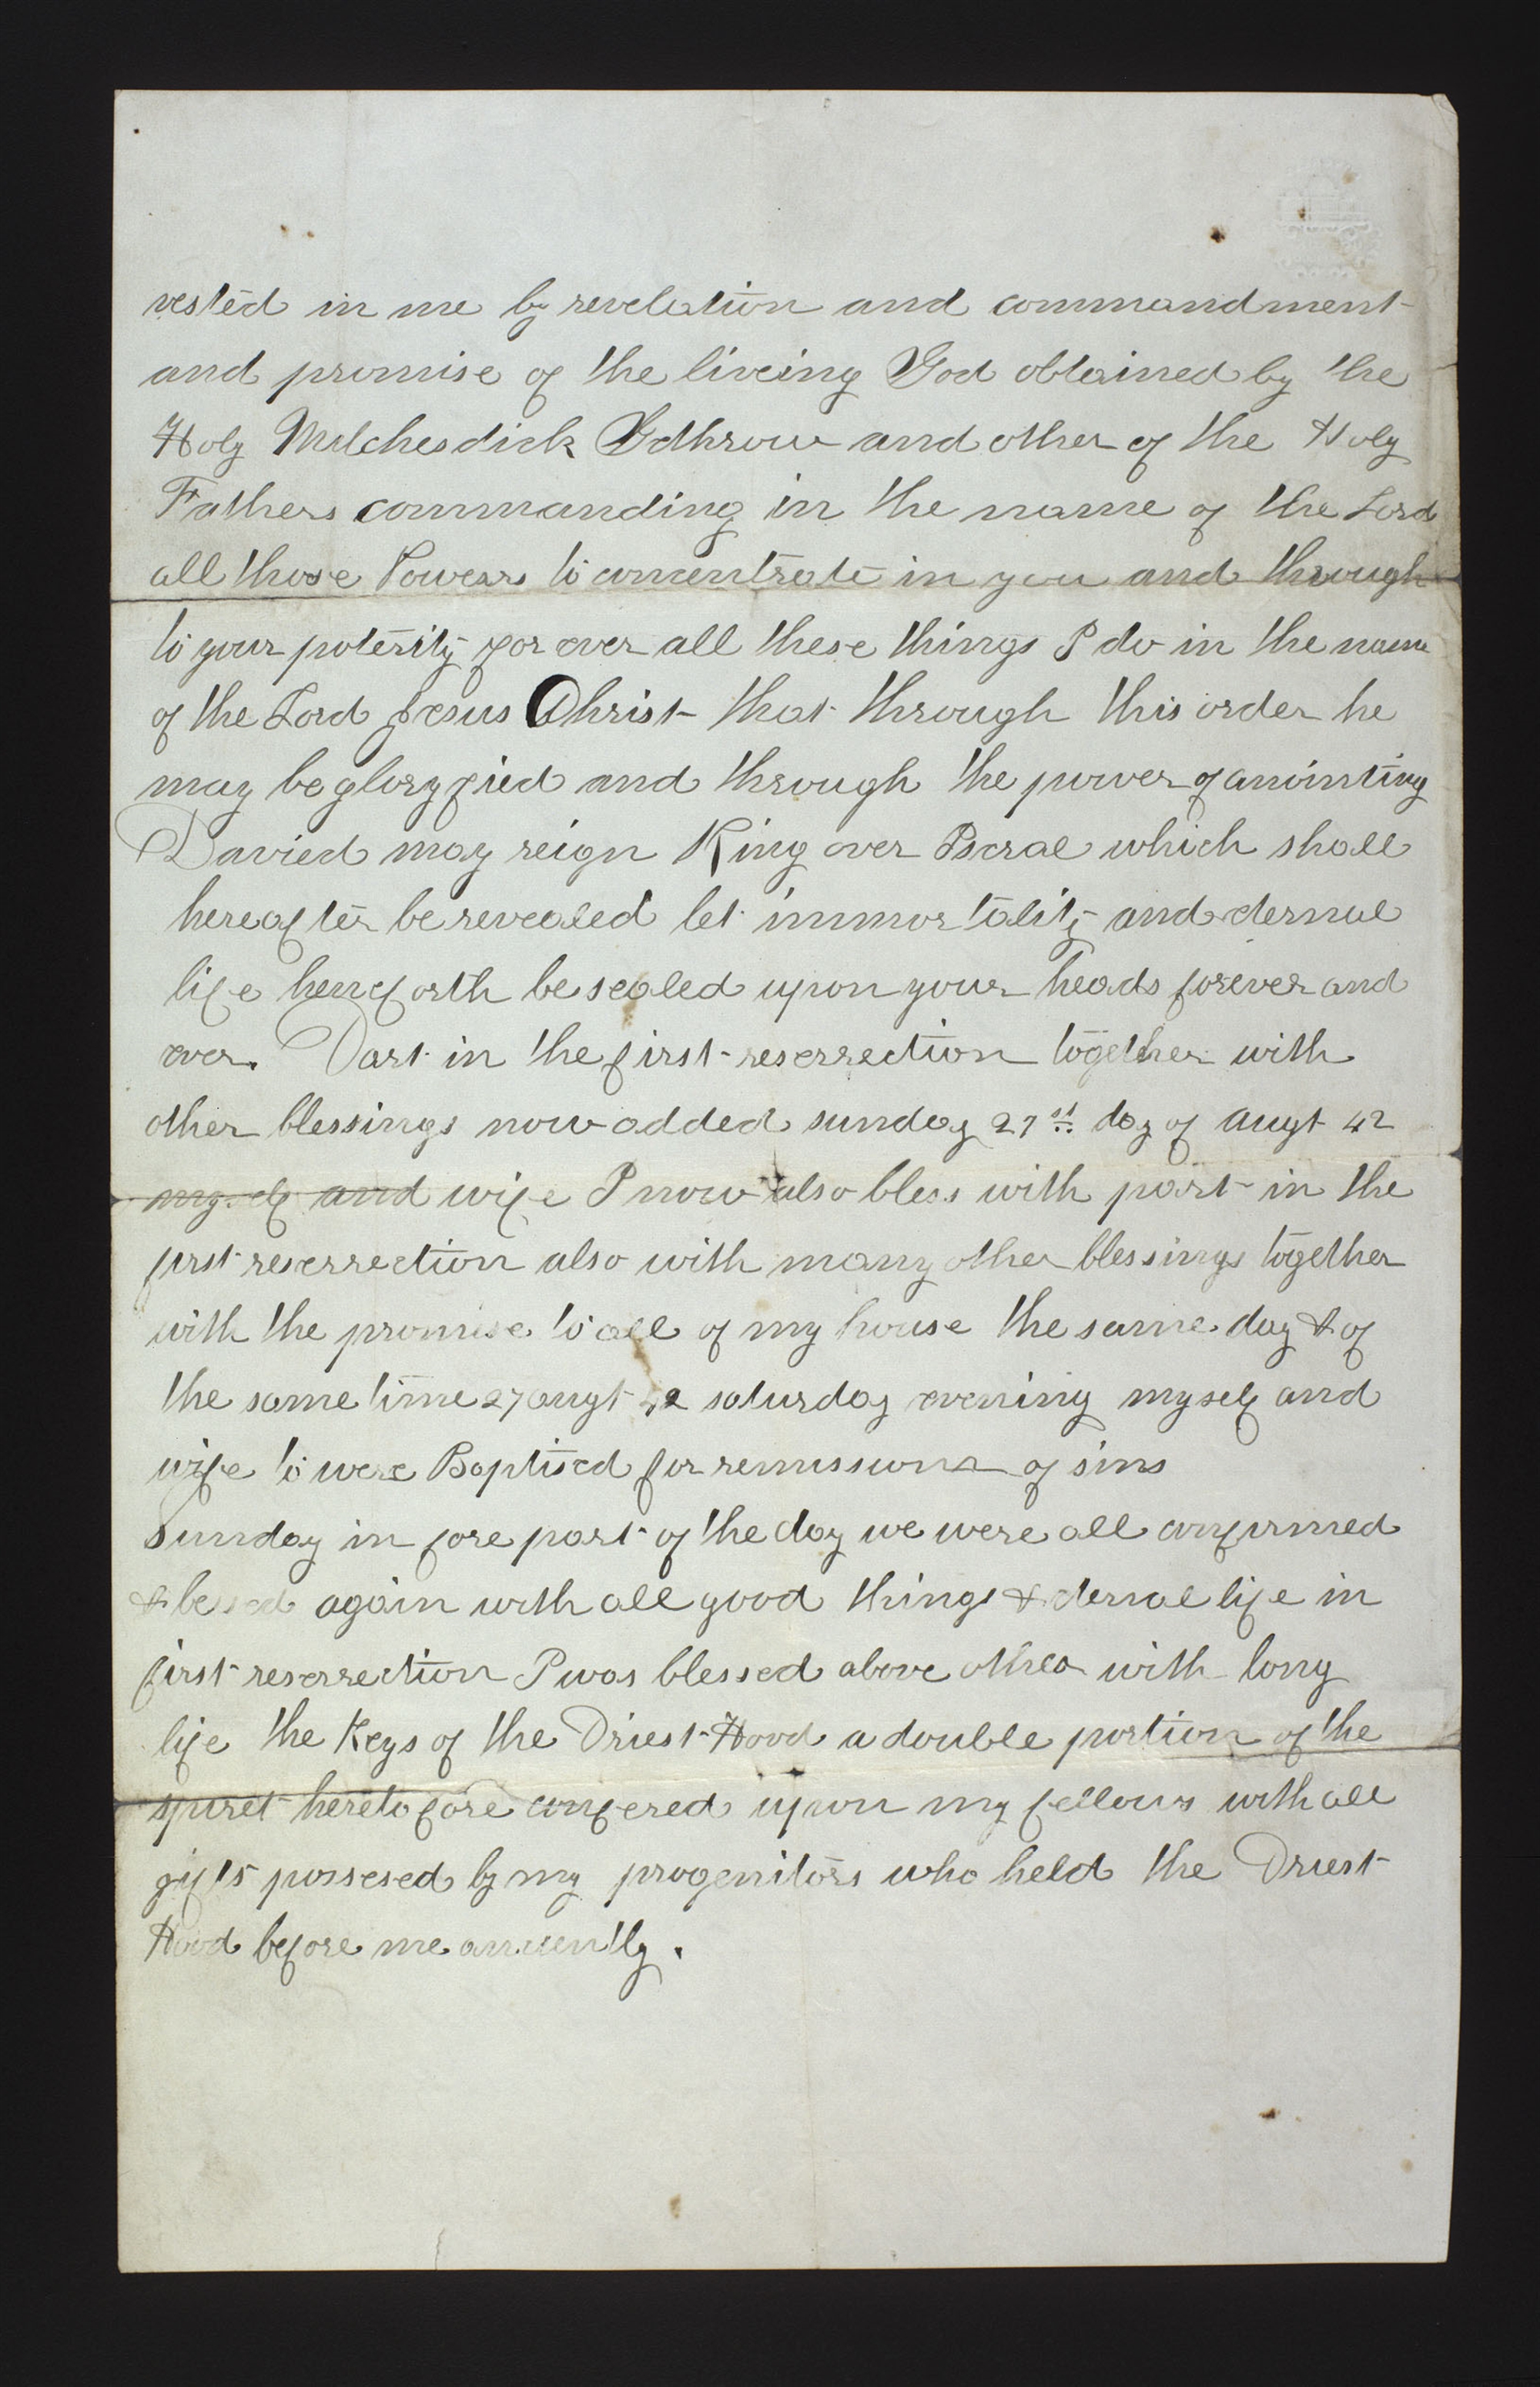 vested in me by revelation and commandment
and promise of the liveing God obtained by the
Holy Milchesdick Gethrow and other of the Holy
Fathers commanding in the name of the Lord
all those Powers to concentrate in you and through
to your poterity for ever all these things I do in the name
of the Lord Jesus Christ that through this order he
may be gloryfied and through the power of anointing
Davied may reign King over Iseral which shall
hereafter be revealed let immortality and eternal
life henceforth be sealed upon your heads forever and
ever. Part in the first reserrection together with
other blessings now added sunday 27st day of Augt 42
myself and wife I now also bless with part in the
first reserrection also with many other blessings together
with the promise to all of my house the same day & of
the same time 27 augt 42 saturday evening myself and
wife to were Baptised for remissions of sins
Sunday in fore part of the day we were all confirmed
& blessed again with all good things & eternal life in
first reserrection I was blessed above others with long
life the Keys of the Priest Hood a double portion of the
spiret heretofore confered upon my fellows with all
gifts possesed by my progenitors who held the Priest
Hood before me anciently.